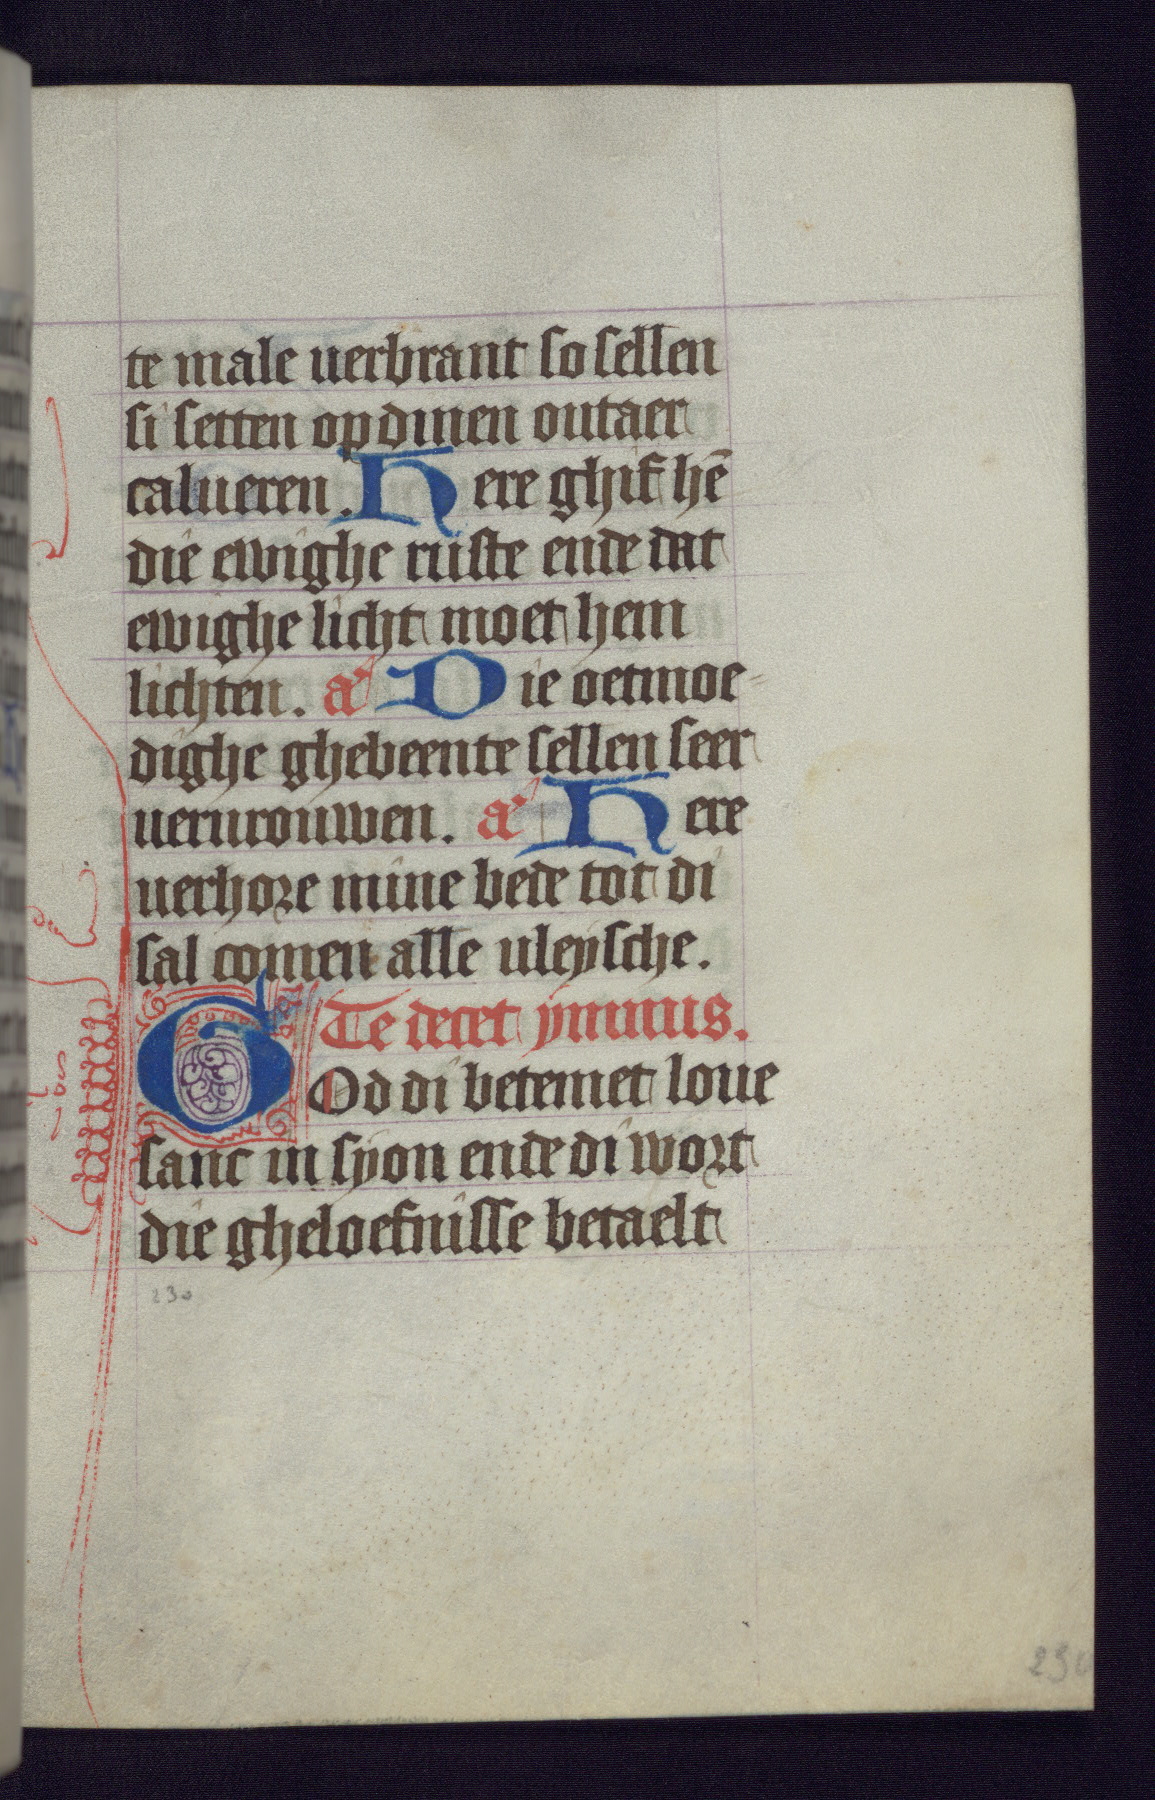 te male uerbrant so sellen
si setten op dinen outaer
calueren. Here ghif hē
die ewighe ruste ende dat
ewighe licht moet hem
lichten. a Die oetmoe-
dighe ghebeente sellen seer
uerurouwen. a Here
uerhore mine bede tot di
sal comen alle uleysche.
Te decet ymnus.
God di betemet loue
sanc in syon ende di wort
die gheloefnisse betaelt
230
230